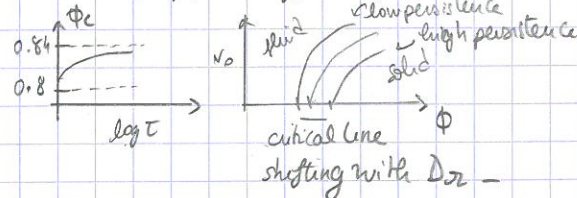 ϕc
0.84
0.8
log τ
v₀
fluid
low persistence
high persistence
solid
ϕ
critical line
shifting with Dr